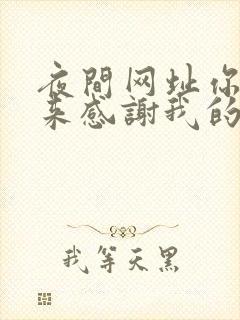 夜間网址你
来感謝我的
我等天黑